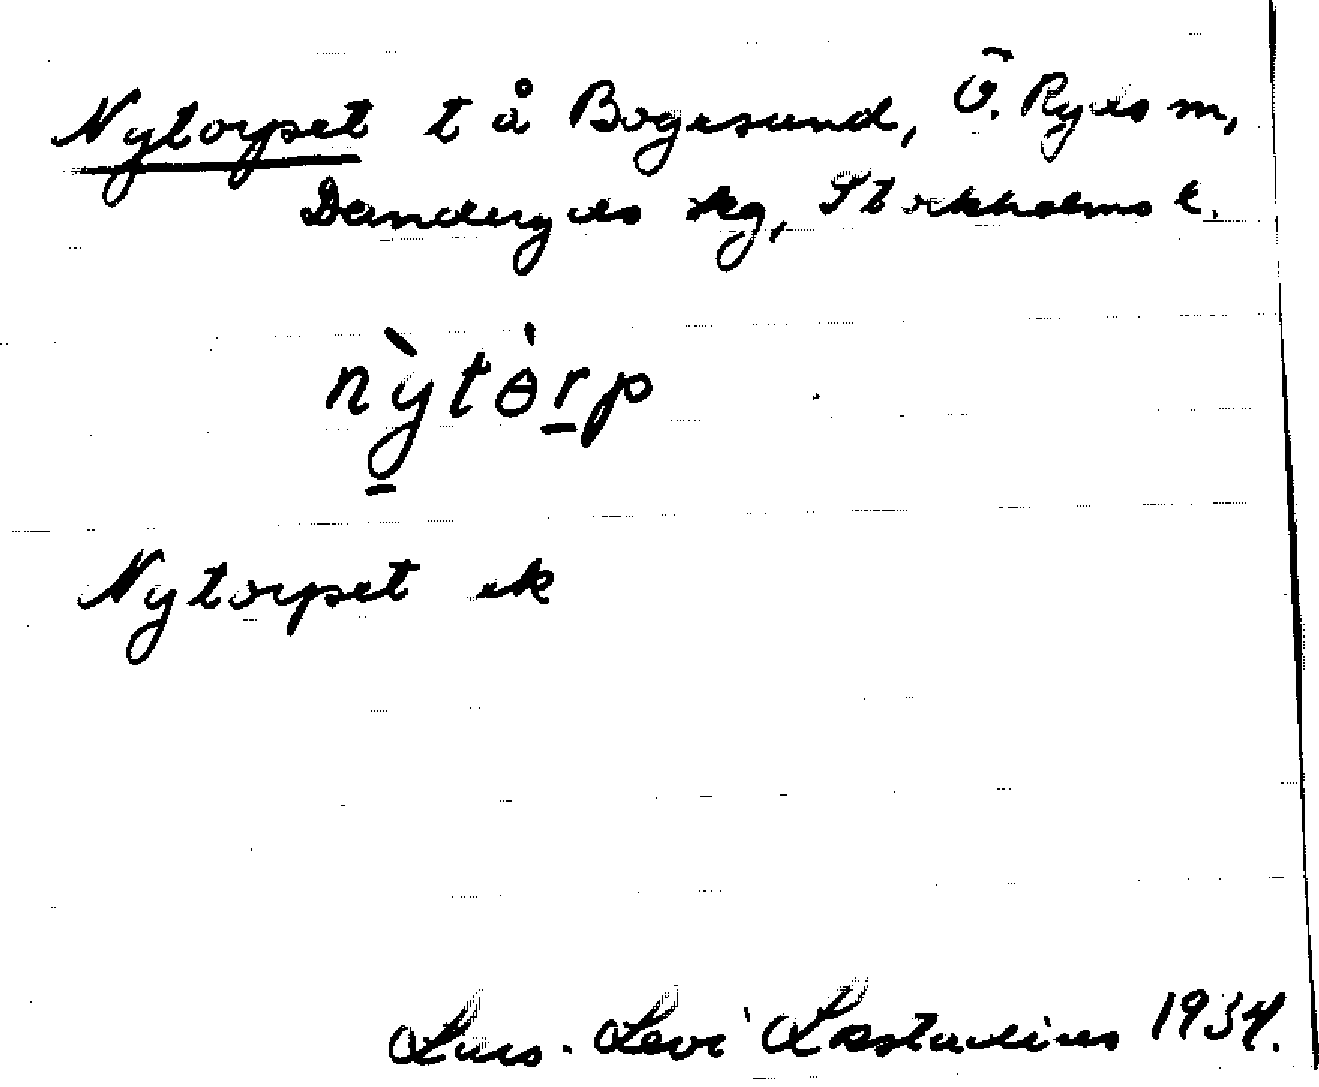 Nytorpet t å Bogesund, Ö. Ryds sn,
Danderyds skg, Stockholms l.
nỳtɵ̀rp
Nytorpet ek
Lars-Levi Læstadius 1934.